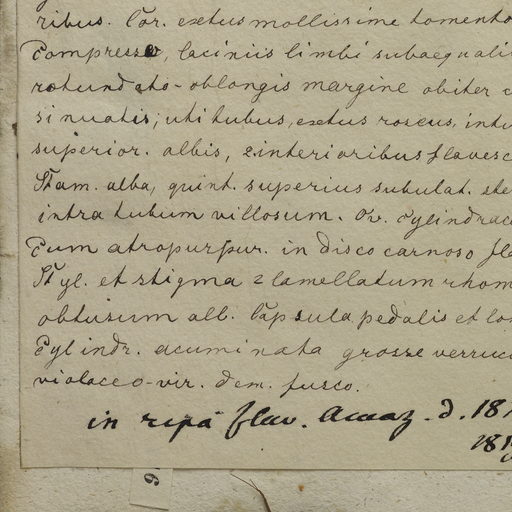 ribus. Cor. extus mollissime tomento
compressa, laciniis limbi subaequali
rotundato-oblongis margine obiter c
sinuatis; uti tubus, extus roseus, int
superior. albis, 2 interioribus flavesc
Stam. alba, quint. superius subulat. ste
intra tubum villosum. Ov. cylindrac
cum atropurpur. in disco carnoso fl
Styl. et stigma 2 lamellatum rhom
obtusum alb. Capsula pedalis et lon
Cylindr. acuminata grosse verruc
violaceo-vir. dem. fusco.
in ripâ fluv. Amaz. d. 18
181
6